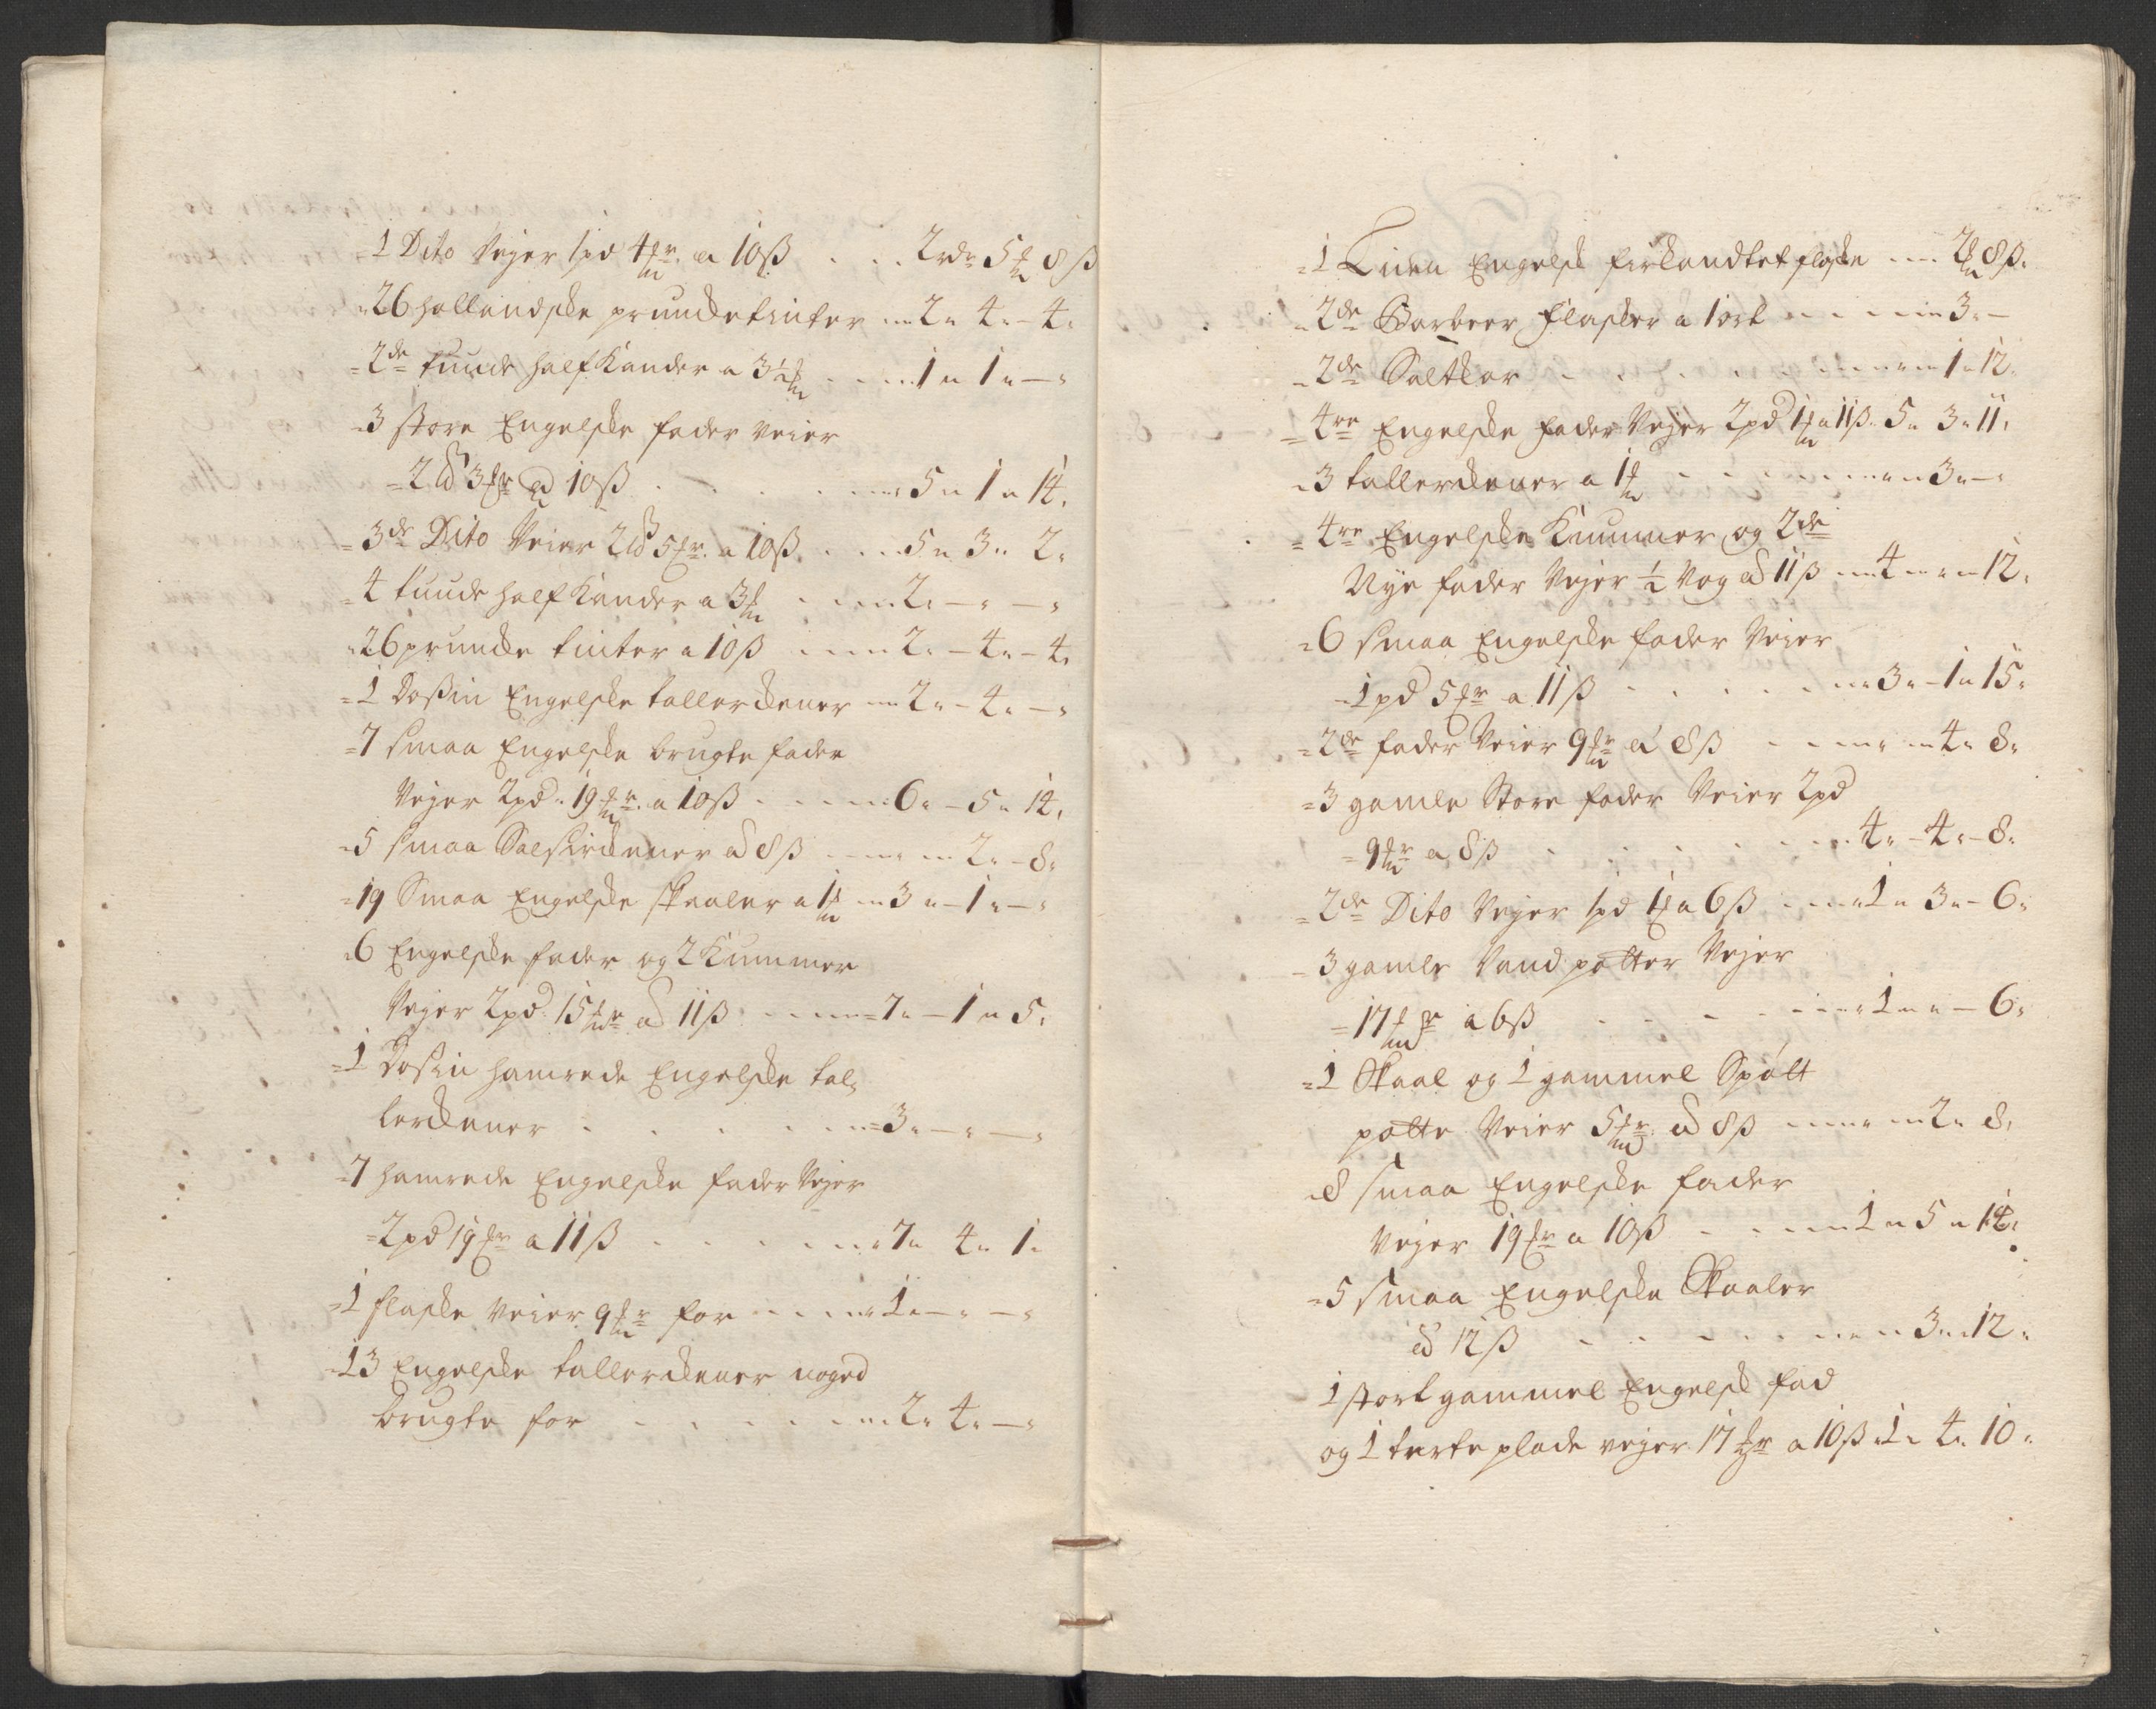 1 Dito Vejer 1pd 4 mr. a 10ß . . . 2 rdr 5 mk 8 ß
26 hollandske prunde tinter 2 " 4 - 4
2de runde half Kander a 3½ mk . . 1 " 1 " —
3 store Engelske fader veier
2 pd 3 mr ad 10ß . . . 5 " 1 " 14
3de Dito Veier 2 pd 5 mr. a 10ß . . . 5 " 3 " 2
4 runde half Kander a 3 mk . . . 2 " — " —
26 prunde tinter a 10ß . . . 2 " — 4 " — 4
1 Dosin Engelske tallerckener 2 " — 4 " —
7 smaa Engelske brugte fade
Vejer 2pd " 19 mr. a 10ß . . . 6 " — 5 " 14
5 smaa Salsirckener ad 8ß . . . 2 " — 8
19 Smaa Engelske skaaler a 1 mk 3 " — 1 " —
6 Engelske fader og 2 Kummer
Vejer 2pd 15 mr ad 11ß . . . 7 " — 1 " 5
1 Dosin hamrede Engelske tal=
lerckener . . . 3 " — " —
7 hamrede Engelske fader Vejer
2pd 19 mr a 11ß . . . 7 " 4 " 1
1 flaske veier 9 mr for . . . 1 " — " —
13 Engelske tallerckener noged
brugte for . . . 2 " 4 " —
1 Liden Engelsk firkandtet flaske . . 2 mk 8ß
2de Barbeer flasker a 1 ort . . . 3 " —
2de Saltkar . . . 1 " 12
4re Engelske fader Vejer 2pd 1 mk a 11ß 5 " 3 " 11
3 tallerckener a 1 mk . . . 3 " —
4re Engelske Kummer og 2de
Nye fader Vejer ½ Vog ad 11ß . . 4 " " 12
6 smaa Engelske fader Veier
1pd 5 mr a 11ß . . . 3 " — 1 " 15
2de fader Veier 9 mr a 8ß . . . 4 " 8
3 gamle Store fader Veier 2pd
9 mr a 8ß . . . 4 " — 4 " — 8
2de Dito Vejer 1pd 1 mk a 6ß . . . 1 " 3 " — 6
3 gamle Vand potter Vejer
17 mr a 6ß . . . 1 " " — 6
1 Skaal og 1 gammel Spølt
potte Veier 5 mr ad 8ß . . . 2 " 8
8 smaa Engelske fader
Vejer 19 mr a 10ß . . . 1 " 5 " 14
5 smaa Engelske Skaaler
ad 12ß . . . 3 " 12
1 stort gammel Engelsk fad
og 1 terte plade vejer 17 mr a 10ß 1 " 4 " 10